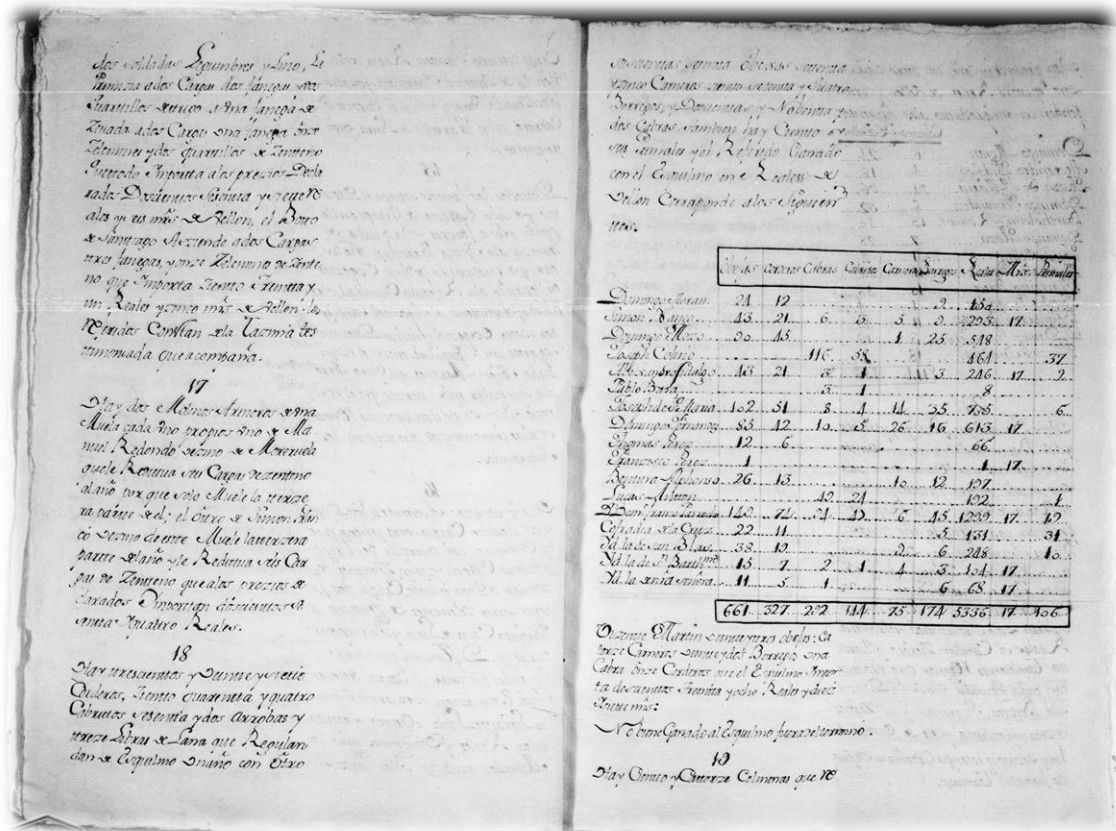 dos soldadas Legumbres y Lino, La
Primizia a dos Cargas dos fanegas y dos
Quartillos de trigo, a Una fanega de
Zevada a dos Cargas Una fanega onze
Zelemines y dos quartillos de Zenteno
Que todo Importa a los prezios Decla
rados Doscientos Sesenta y siete Re
ales y seis mrs de Vellon, el Boto
de Santiago Asziende a dos Cargas
tres fanegas, y onze Zelemines de Zente
no que Importa Ziento y treinta y
un Reales y zinco mrs de Vellon. los
Referidos Constan de la Tazmia tes
timoniada que acompaña.
17
Hay dos Molinos Arineros de Una
Muela cada Uno propios Uno de Ma
nuel Redondo Vezino de Moreruela
que le Reditua seis Cargas de zenteno
al año por que solo Muele la terze
ra parte de el; el Otro de Simon Blan
co Vezino de este Muele la terzera
parte del año y le Reditua seis Car
gas de Zenteno que a los prezios de
clarados Importan doscientos se
senta y quatro Reales.
18
Hay trescientos y Veinte y siete
Corderos, Ziento quarenta y quatro
Cabritos sesenta y dos arrobas y
treze Libras de Lana que Regulan
dan de Esquilmo Un año con Otro
seiscientas sesenta Obejas setenta
y zinco Carneros ziento setenta y quatro
Borregos, y Doscientas y Nobenta y
dos Cabras. Tambien hay Ciento y
seis Primales y el Referido Ganado
con el Esquilmo en Reales de
Vellon Corresponde a los Siguien
tes.
Obejas Corderos Cabras Cabritos Carneros Borregos Reales Mrs. Primales
Domingo Moran 24 12 2 130
Simon Blanco 43 21 6 3 5 9 293 17
Domingo Mozo 90 45 1 25 548
Joseph Colino 116 58 464 37
Alexandro fidalgo 43 21 3 1 3 246 17 2
Pablo Bara 3 1 8
Joseph de Sta Maria 102 51 8 4 14 35 735 6
Domingo Fernandez 85 42 10 5 26 16 613 17
Thomas Perez 12 6 66
Francisco Perez 1 1 17
Bentura Alphonso 26 13 10 12 197
Lucas Anton 49 24 192 1
Dn Domingo franco Parrado 149 74 94 47 6 45 1299 17 19
Cofradia de la Cruz 22 11 5 131 31
Yd la de san Blas 38 19 2 6 248 10
Yd la de Sn Barthme 15 7 2 1 4 3 104 17
Yd la de nra señora 11 5 1 6 65 17
661 327 292 144 75 174 5336 17 106
Vizente Martin Veinte y tres obejas: Ca
torze Carneros Veinte y dos Borregos Una
Cabra Onze Corderos que el Esquilmo Impor
ta doscientos treinta y ocho Reales y diez
y siete mrs:
No tiene Ganado al Esquilmo fuera del termino.
19
Hay Ciento y Catorze Colmenas que Re